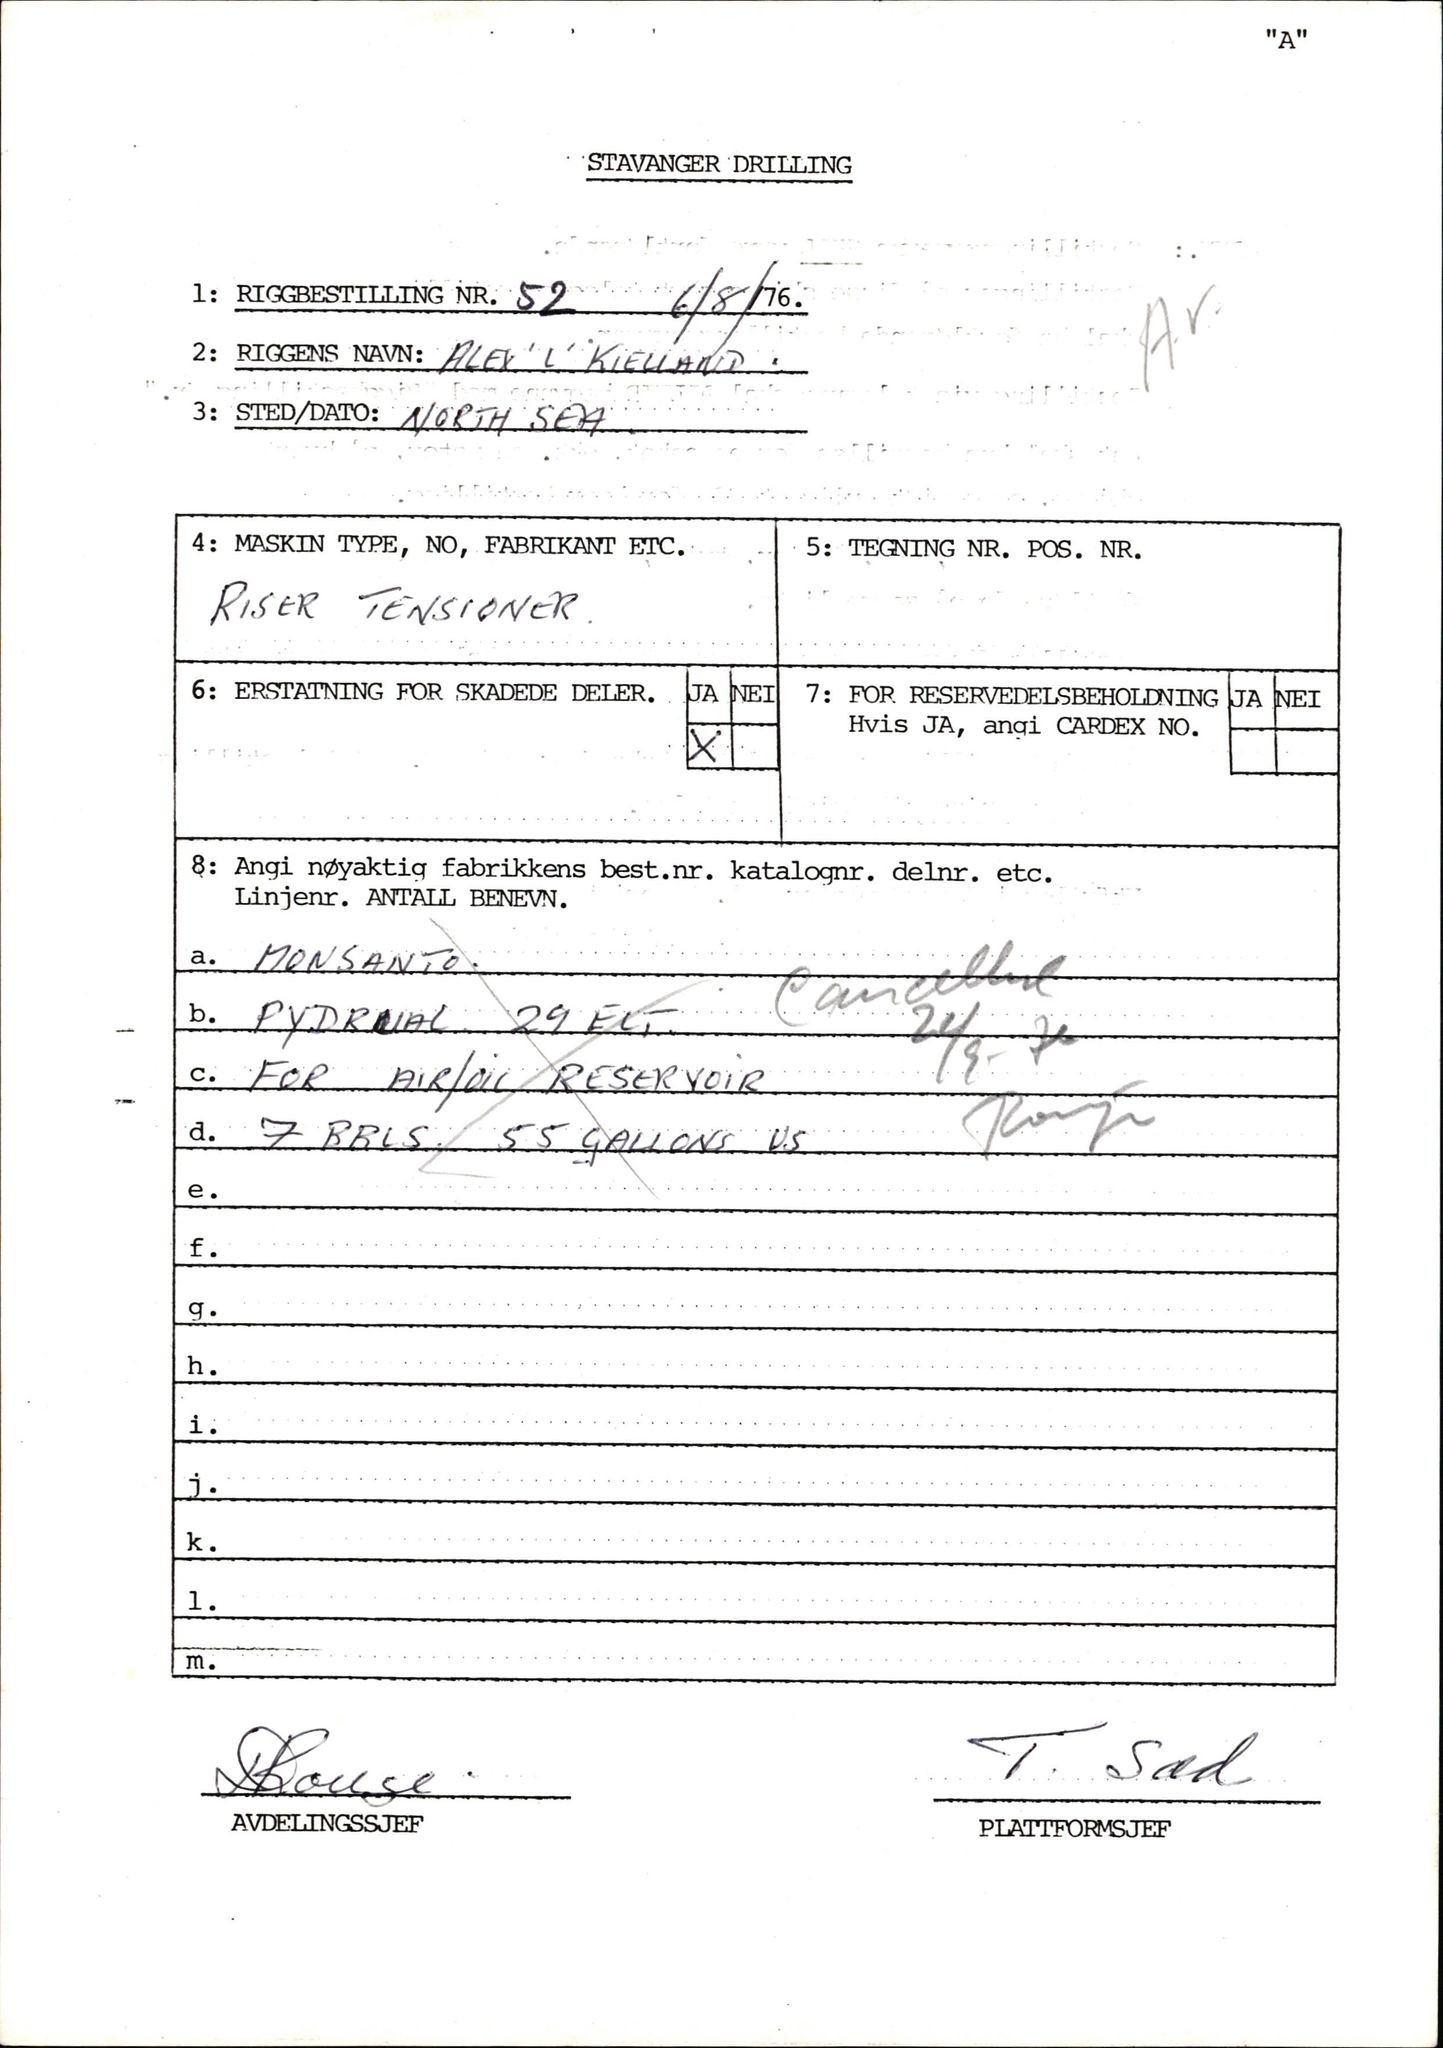 "A"
STAVANGER DRILLING
1: RIGGBESTILLING NR. 52 6/8/76.
2: RIGGENS NAVN: ALEX 'L' KIELLAND.
3: STED/DATO: NORTH SEA.
4: MASKIN TYPE, NO, FABRIKANT ETC.
RISER TENSIONER.
5: TEGNING NR. POS. NR.
6: ERSTATNING FOR SKADEDE DELER. JA NEI
X
7: FOR RESERVEDELSBEHOLDNING JA NEI
Hvis JA, angi CARDEX NO.
8: Angi nøyaktig fabrikkens best.nr. katalognr. delnr. etc.
Linjenr. ANTALL BENEVN.
a. MONSANTO.
b. PYDRNAL 29 ELT.
c. FOR AIR/OIL RESERVOIR
d. 7 BBLS. 55 GALLONS US
Cancelled
24/9-76
e.
f.
g.
h.
i.
j.
k.
l.
m.
T. Sæd
AVDELINGSSJEF
PLATTFORMSJEF